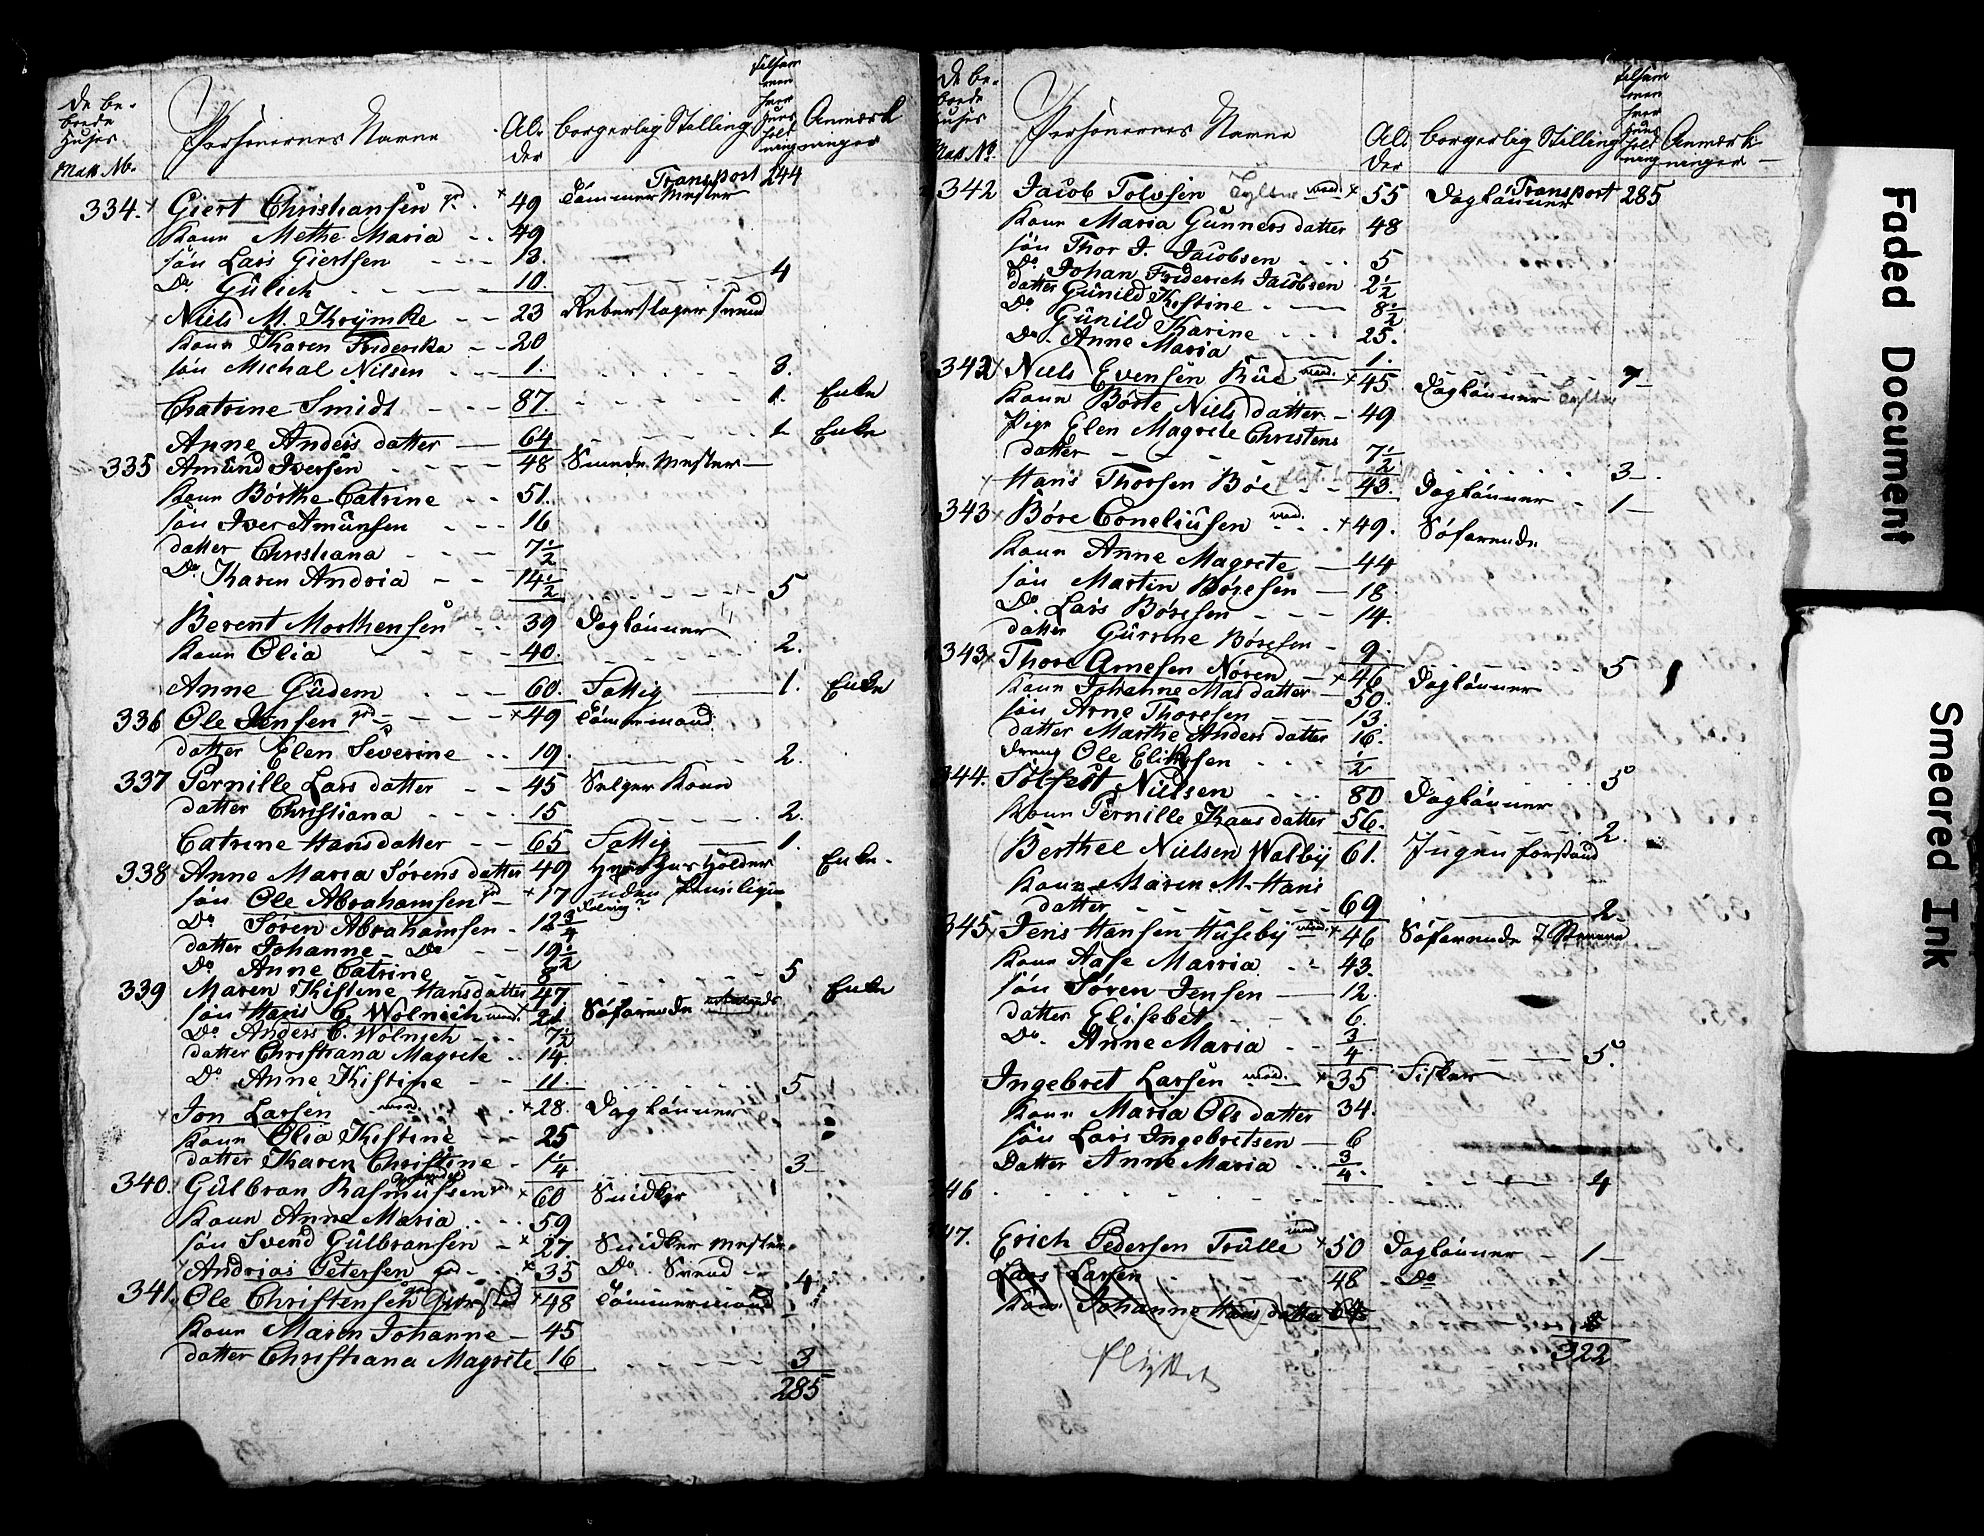 De be-
boede
Huses
Matr No.
Personernes Navne
Al-
der
borgerlig Stilling
Tilsam
men
hver
Huus
hold
ning
Anmærk
ninger
Transport 244
334. Giert Christiansen 49 Tømmer Mester
Kone Methe Maria 49
søn Lars Giertsen 13.
Do Gulich 10. 4
Niels M. Krymke 23 Rebslager svend
Kone Karen Friderika 20
søn Michal Nilsen 1. 3.
Chatrine Smidt 87. 1. Enke
Anne Anders datter 64 1 Enke
335 Amund Iversen 48 Smede Mester
Kone Børthe Catrine 51.
søn Iver Amunsen 16
datter Christiana 7½
Do Karen Andria 14½ 5
Berent Morthensen 39 Daglønner
Kone Olia 40. 2.
Anne Gudem 60. Fattig 1. Enke
336 Ole Jensen 49 Tømmermand
datter Elen Severine 19. 2.
337 Pernille Lars datter 45 Selger Korn
datter Christiana 15 2.
Catrine Hans datter 65 Fattig 1.
338 Anne Maria Sørens datter 49 Enke.
søn Ole Abrahamsen 17 uden
Do Søren Abrahamsen 12¾
datter Johanne Do 19½
Do Anne Catrine 8 5
339 Maren Kistine Hansdatter 47. Enke
søn Hans C. Wolnich 21 Søfarende
Do Anders C. Wolnich 7½
datter Christiana Magrete 14
Do Anne Kistine 11. 5
Jon Larsen 28. Daglønner
Kone Olia Kistine 25
datter Karen Christine 1¼ 3
340. Gulbran Rasmussen 60 Snidker
Kone Anne Maria 59
søn Svend Gulbransen 27. Snidker mester
Andrias Petersen 35 Do Svend 4
341. Ole Christensen 48 Tømmermand
Kone Maren Johanne 45
datter Christiana Magrete 16 3
285
De be-
boede
Huses
Matr No
Personernes Navne
Al-
der
borgerlig Stilling
Tilsam
men
hver
Huus
hold
ning
Anmærk
ninger
Transport 285
342 Jacob Tolvsen 55 Daglønner
Kone Maria Gunners datter 48
søn Thor J. Jacobsen 5
Do Johan Friderich Jacobsen 2½
datter Gunild Kistine 8½
Do Gunild Karine 25.
Do Anne Maria 1. 7
342 Niels Evensen Bue 45 Daglønner
Kone Børte Niels datter 49
Pige Elen Magrete Christens
datter 7½ 3
Hans Thorsen Bøe 43. Daglønner 1
343 Børe Corneliusen 49. Søfarende
Kone Anne Magrete 44
søn Martin Børesen 18
Do Lars Børesen 14.
datter Gurine Børesen 9. 5
343 Thore Arnesen Noren 46 Daglønner
Kone Johanne Mas datter 50.
søn Arne Thoresen 13.
datter Marthe Anders datter 16.
Dreng Ole Eliksen ½ 5
344. Solfest Nielsen 80 Daglønner
Kone Pernille Klaus datter 56. 2.
Berthel Nielsen Walbÿ 61. Ingen forstand
Kone Maren M. Hans
datter 69 2
345 Jens Hansen Husebÿ 46 Søfarende
Kone Aase Marria 43.
søn Søren Jensen 12.
datter Elisebet 6.
Do. Anne Maria ¾ 5
Ingebret Larsen 35 Fisker
Kone Maria Ols datter 34.
søn Lars Ingebretsen 6
Datter Anne Maria ¾ 4
46
47. Erich Pedersen Trulle 50 Daglønner 1
Lars Larsen 48 Do
Kone Johanne Hans datter 64
322
flyttet
Faded Document
Smeared Ink